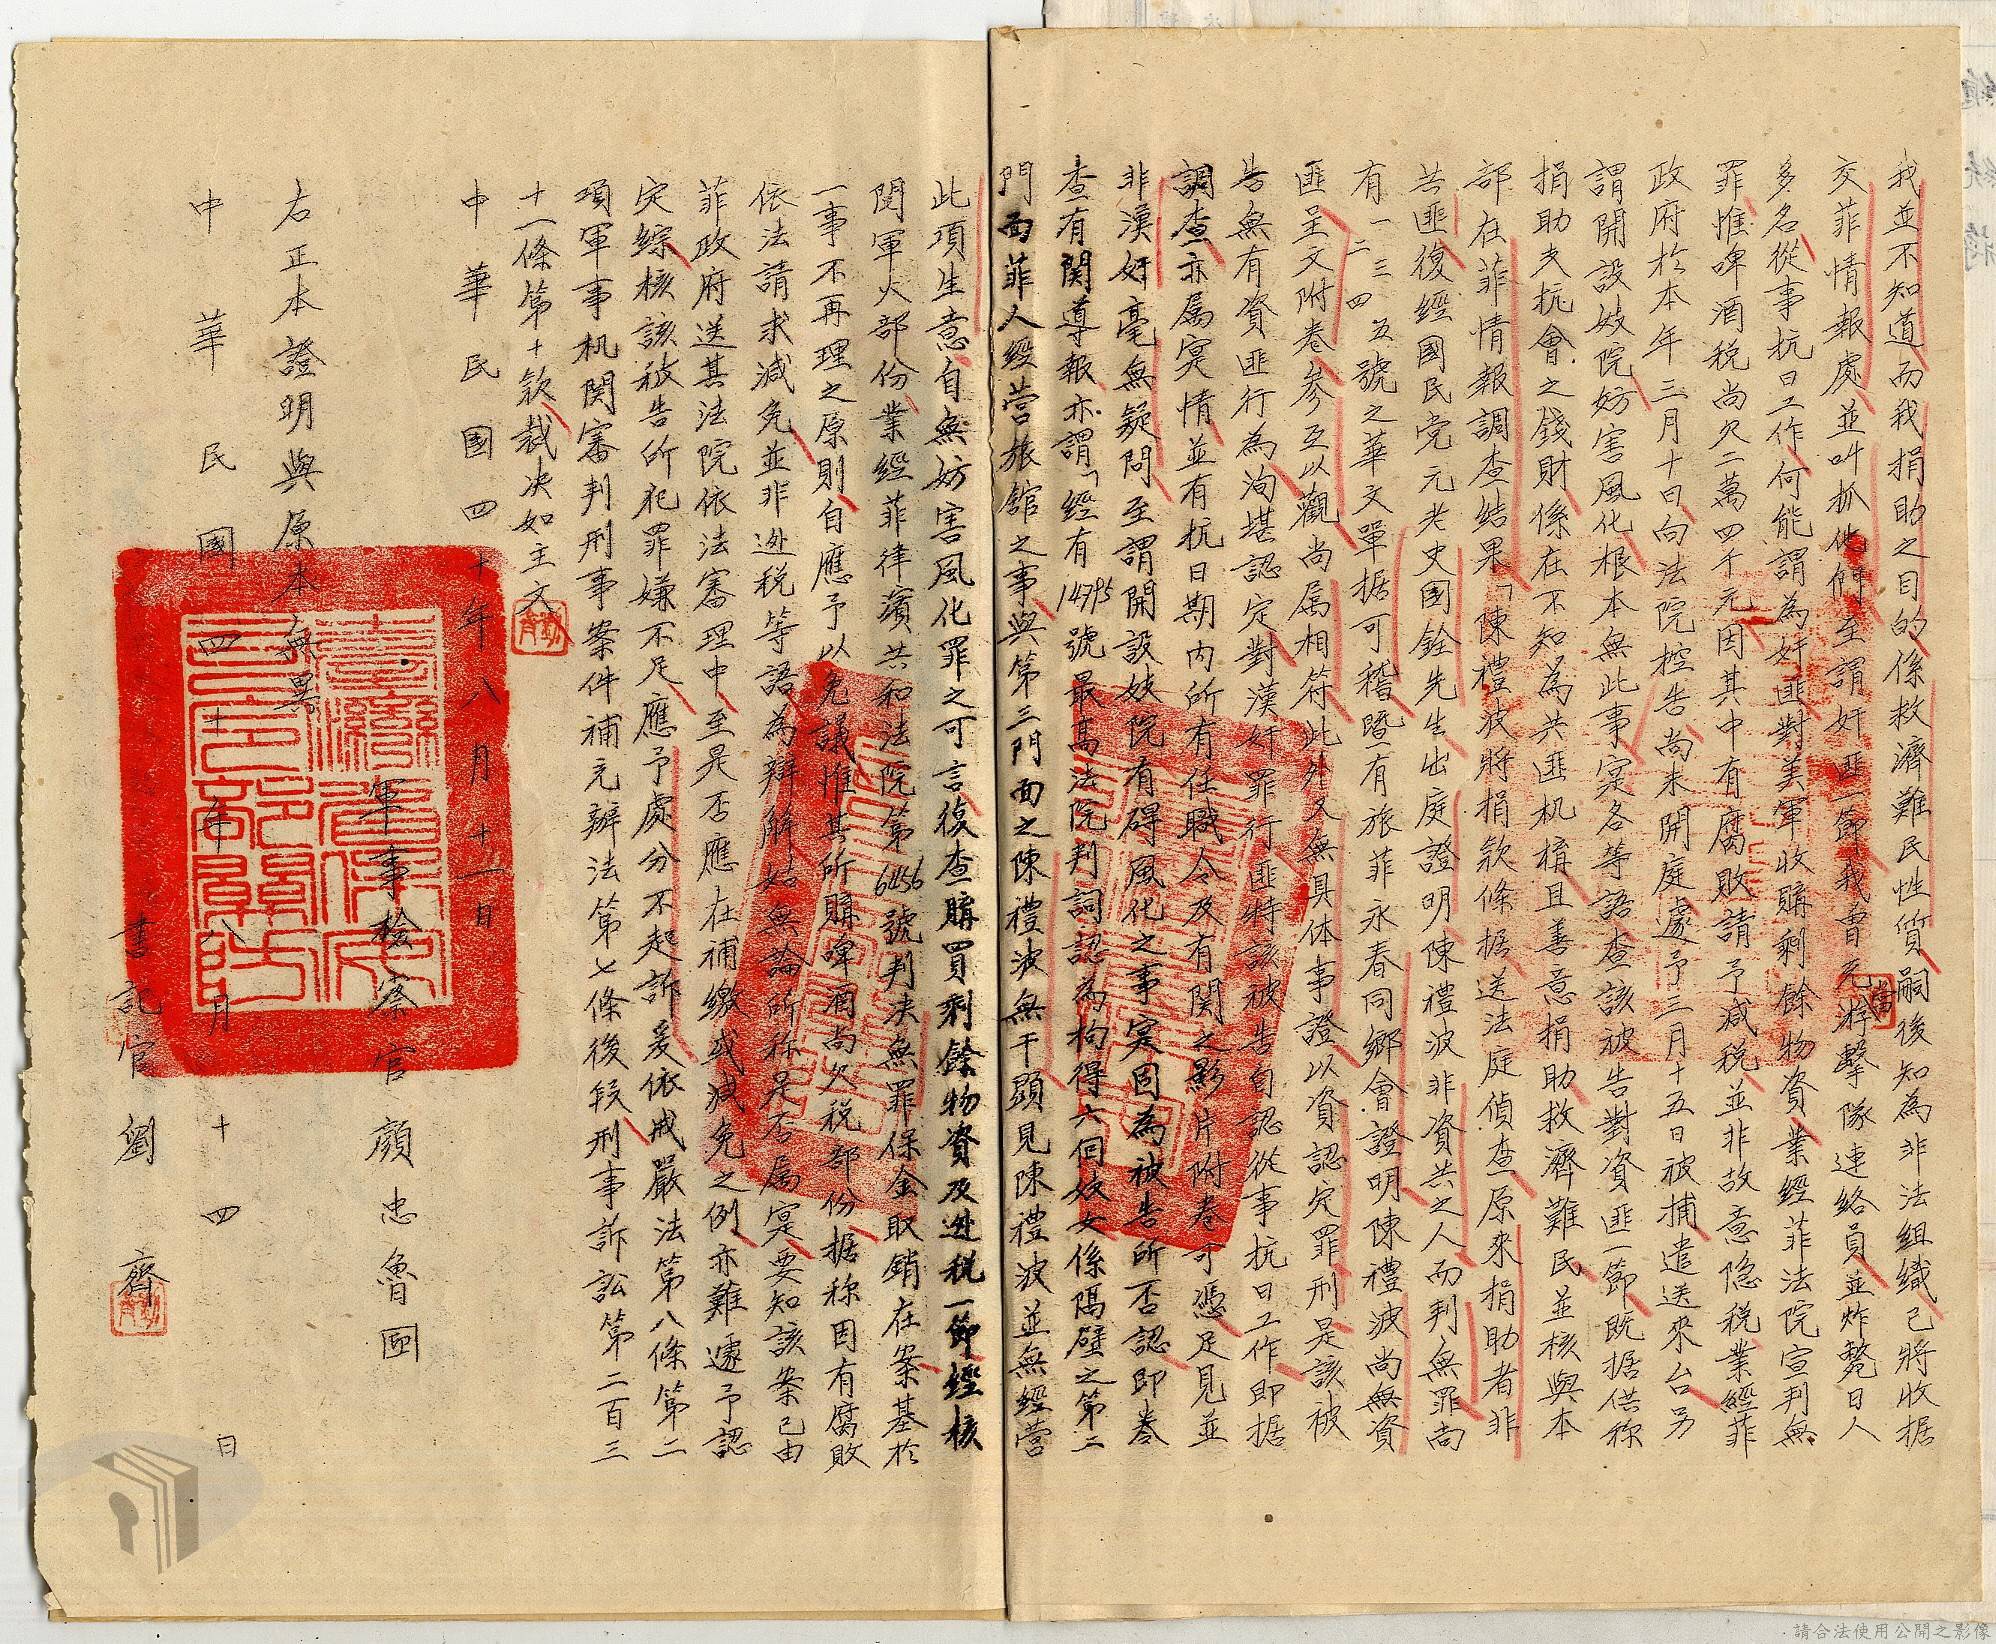 我並不知道而我捐助之目的係救濟難民性質嗣後知為非法組織已將收据
交菲情報處並叫抓他們至謂奸匪一節我曾充游擊隊連絡員並炸斃日人
多名從事抗日工作何能謂為奸匪對美軍收購剩餘物資業經菲法院宣判無
罪惟啤酒税尚欠二萬四千元因其中有腐敗請予减税並非故意隐税業經菲
政府於本年三月十日向法院控告尚未開庭處予三月十五日被捕遣送來台另
謂開設妓院妨害風化根本無此事实各等語查該被告對資匪一節既据供称
捐助支抗會之錢財係在不知為共匪机構且善意捐助救濟難民並核與本
部在菲情報調查結果「陳禮波將捐款條据送法庭偵查原來捐助者非
共匪復經國民党元老史國銓先生出庭證明陳禮波非資共之人而判無罪尚
有一二三四五號之華文單据可稽暨有旅菲永春同鄉會證明陳禮波尚無資
匪呈文附卷參互以觀尚属相符此外又無具体事證以資認定罪刑是該被
告無有資匪行為洵堪認定對漢奸罪行匪特該被告自認從事抗日工作即据
調查亦属实情並有抗日期内所有任職令及有関之影片附卷可憑足見並
非漢奸毫無疑問至謂開設妓院有碍風化之事实固為被告所否認即卷
查有関導報亦謂「經有14795號最高法院判詞認為拘得六伺妓女係隔壁之第二
門面菲人經营旅館之事與第三門面之陳禮波無干顕見陳禮波並無經营
此項生意自無妨害風化罪之可言復查購買剩餘物資及逃税一節經核
関軍火部份業經菲律濱共和法院第6456號判决無罪保金取銷在案基於
一事不再理之原則自應予以免議惟其所購啤酒尚欠税部份据称因有腐敗
依法請求减免並非逃税等語為辯解姑無論所称是否属实要知該案已由
菲政府送其法院依法審理中至是否應在補繳或减免之例亦難遽予認
定綜核該被告所犯罪嫌不足應予處分不起訴爰依戒嚴法第八條第二
項軍事机関審判刑事案件補充辦法第七條後段刑事訴訟第二百三
十一條第十款裁决如主文
中華民國四十年八月十一日
軍事檢察官顔忠魯
右正本證明與原本無異
中華民國四十年八月十四日
書記官劉齊
請合法使用公開之影像